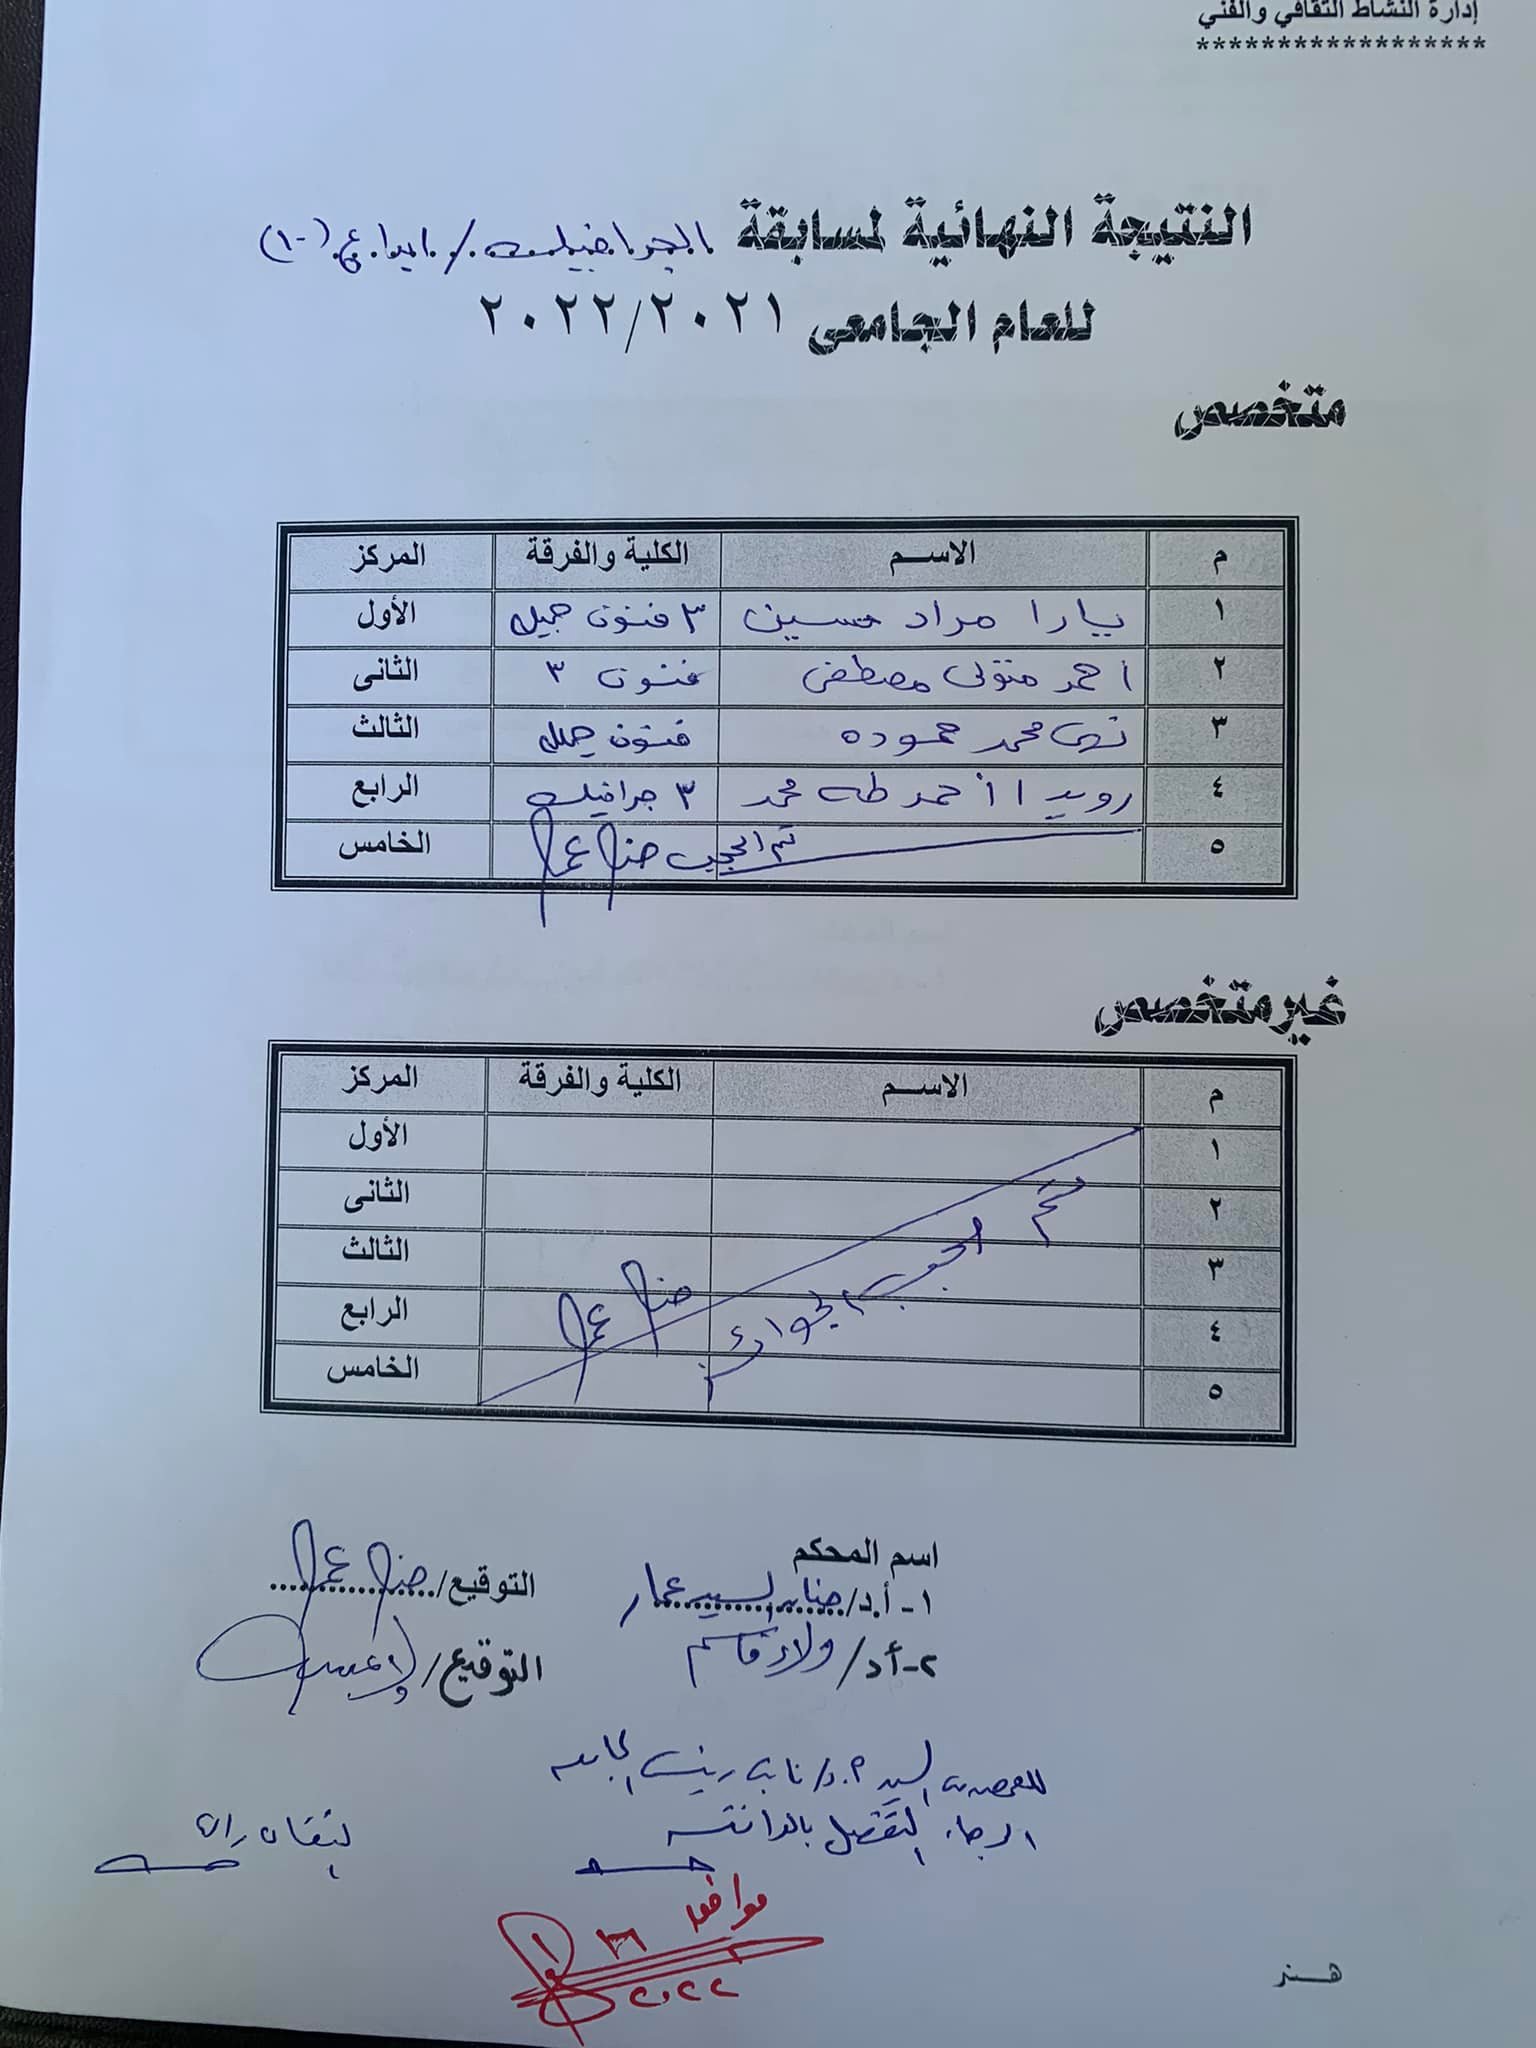 إدارة النشاط الثقافي والفني
******************
النتيجة النهائية لمسابقة الجرافيك / ابداع (١٠)
للعام الجامعى ٢٠٢٢/٢٠٢١
متخصص
م الاســـم الكلية والفرقة المركز
١ يارا مراد حسين ٣ فنون جميله الأول
٢ احمد متولى مصطفى فنون ٣ الثانى
٣ نهى محمد حموده فنون جميله الثالث
٤ رويدا أحمد طه محمد ٣ جرافيك الرابع
٥ تم الحجب الخامس
غير متخصص
م الاســـم الكلية والفرقة المركز
١ الأول
٢ الثانى
٣ الثالث
٤ الرابع
٥ الخامس
تم حجب الجوائز
اسم المحكم
١- أ.د/ السيد عمار التوقيع/
٢- أ.د/ ولاء قاسم التوقيع/
السيد أ.د/ نائب رئيس الجامعة
الرجاء التفضل بالموافقة
موافق
٢٠٢٢